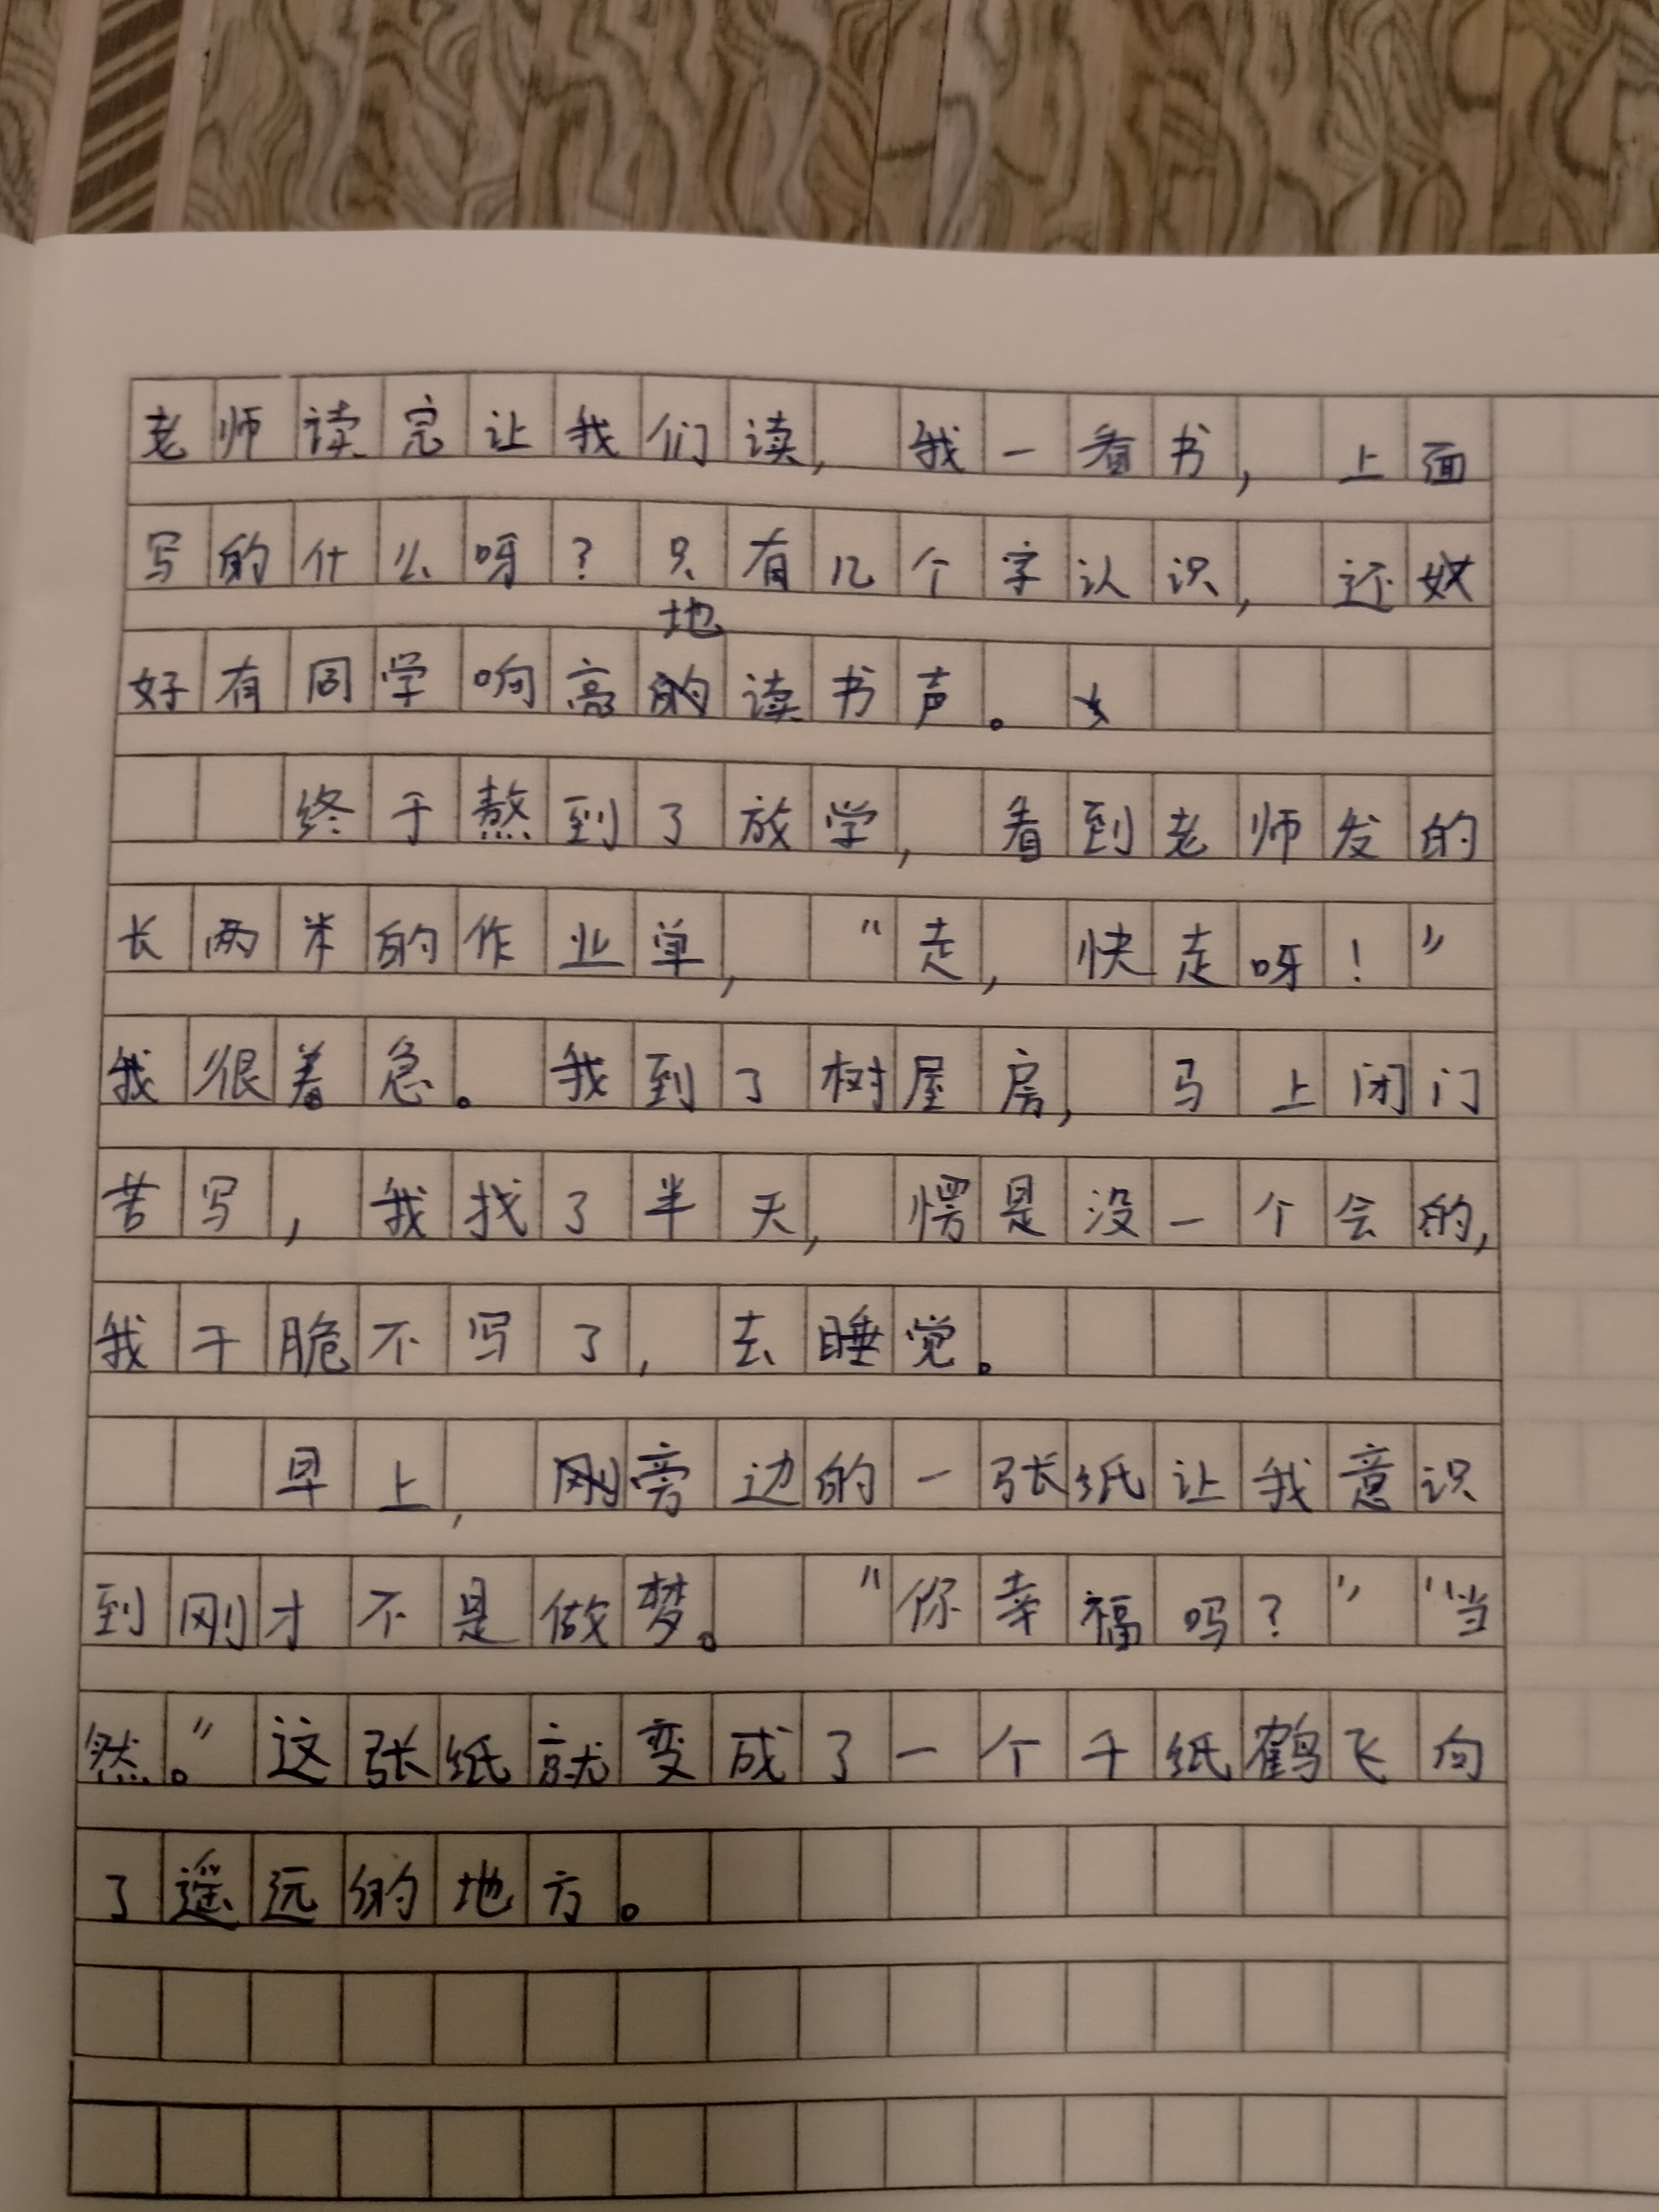 老师读完让我们读，我一看书，上面
写的什么呀？只有几个字认识，还
地
好有同学响高的读书声。
终于熬到了放学，看到老师发的
长两米的作业单，“走，快走呀！”
我很着急。我到了树屋房，马上闭门
苦写，我找了半天，愣是没一个会的，
我干脆不写了，去睡觉。
早上，刚旁边的一张纸让我意识
到刚才不是做梦。“你幸福吗？”“当
然。”这张纸就变成了一个千纸鹤飞向
了遥远的地方。